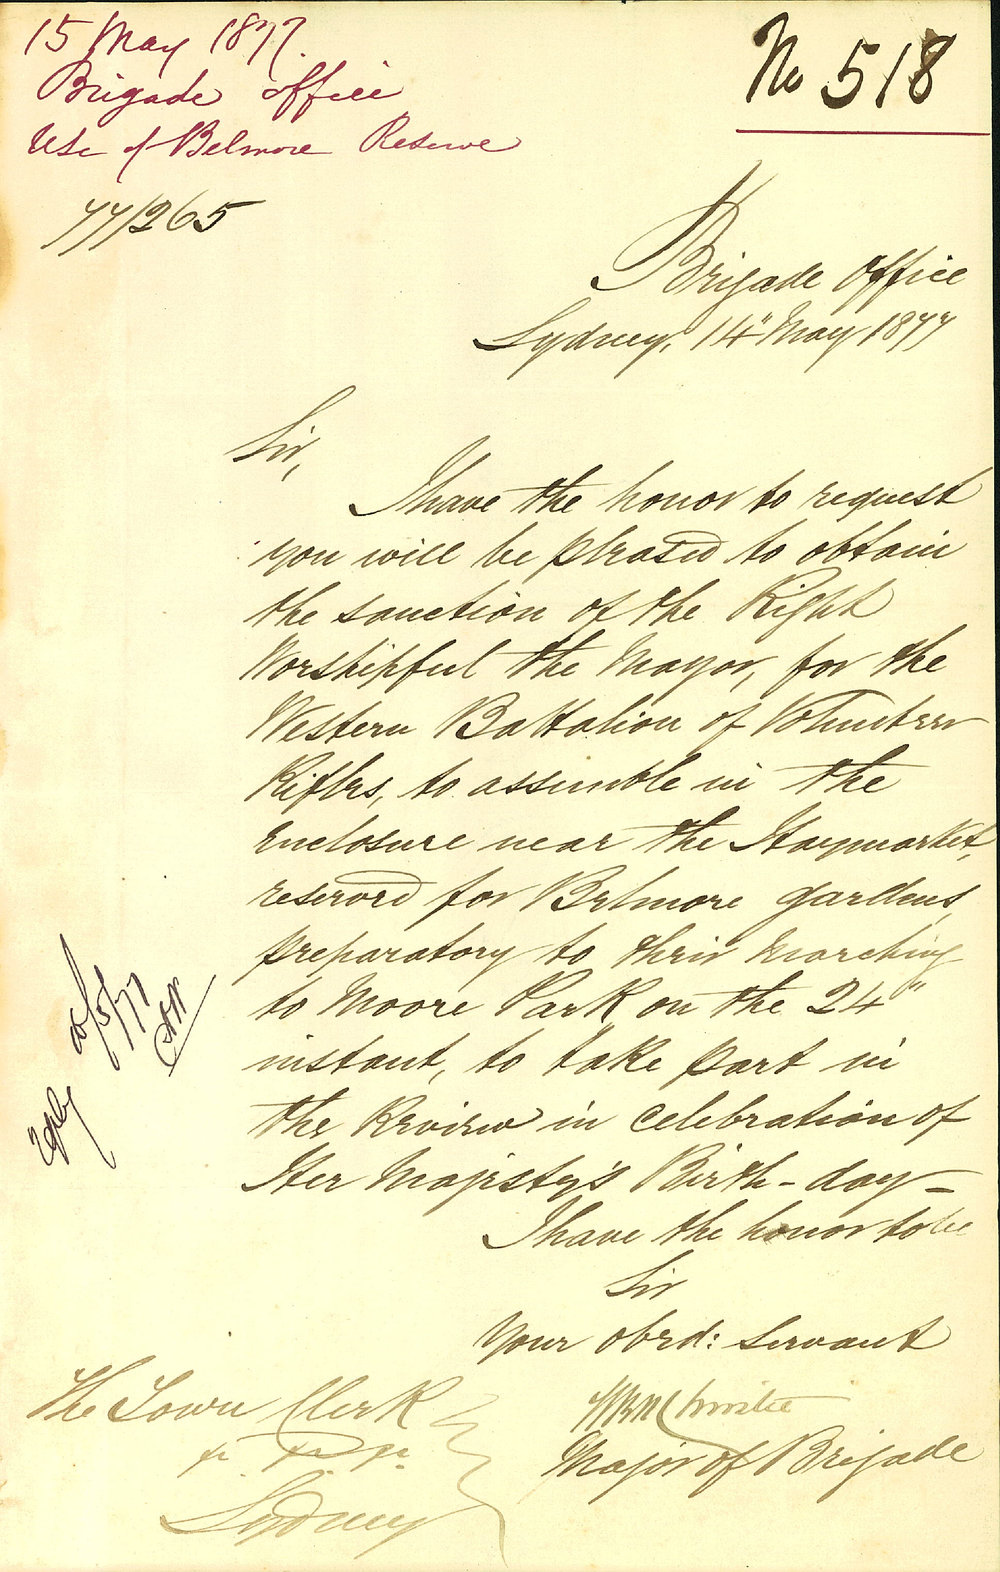 15 May 1877.
Brigade Office
Use of Belmore Reserve
77/265
No 518
Brigade Office
Sydney, 14" May 1877
Sir,
I have the honor to request
you will be pleased to obtain
the sanction of the Right
Worshipful the Mayor, for the
Western Battalion of Volunteer
Rifles, to assemble in the
enclosure near the Haymarket,
reserved for Belmore Gardens,
preparatory to their marching
to Moore Park on the 24"
instant, to take part in
the Review in celebration of
Her Majesty's Birth-day-
I have the honor to be
Sir
Your obed: Servant
Christie
Major of Brigade
The Town Clerk
Sydney